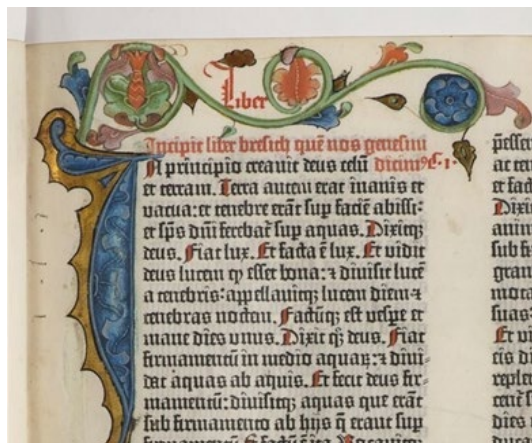 Liber
Incipit liber bresich quē nos genesim
In principio creauit deus celū dicimꝰ C·1·
et terram. Terra autem erat inanis et
vacua: et tenebre erāt sup faciē abissi:
et sp̄s dn̄i ferebat̄ sup aquas. Dixitqꝫ
deus. Fiat lux. Et facta ē lux. Et vidit
deus lucem ꝙ esset bona: ⁊ diuisit lucē
a tenebris: appellauitqꝫ lucem diem ⁊
tenebras noctem. Factūqꝫ est vespe et
mane dies vnus. Dixit qꝫ deus. Fiat
firmamentū in medio aquaꝝ: ⁊ diui-
dat aquas ab aquis. Et fecit deus fir-
mamentū: diuisitqꝫ aquas que erāt
sub firmamento ab hijs q̄ erant sup